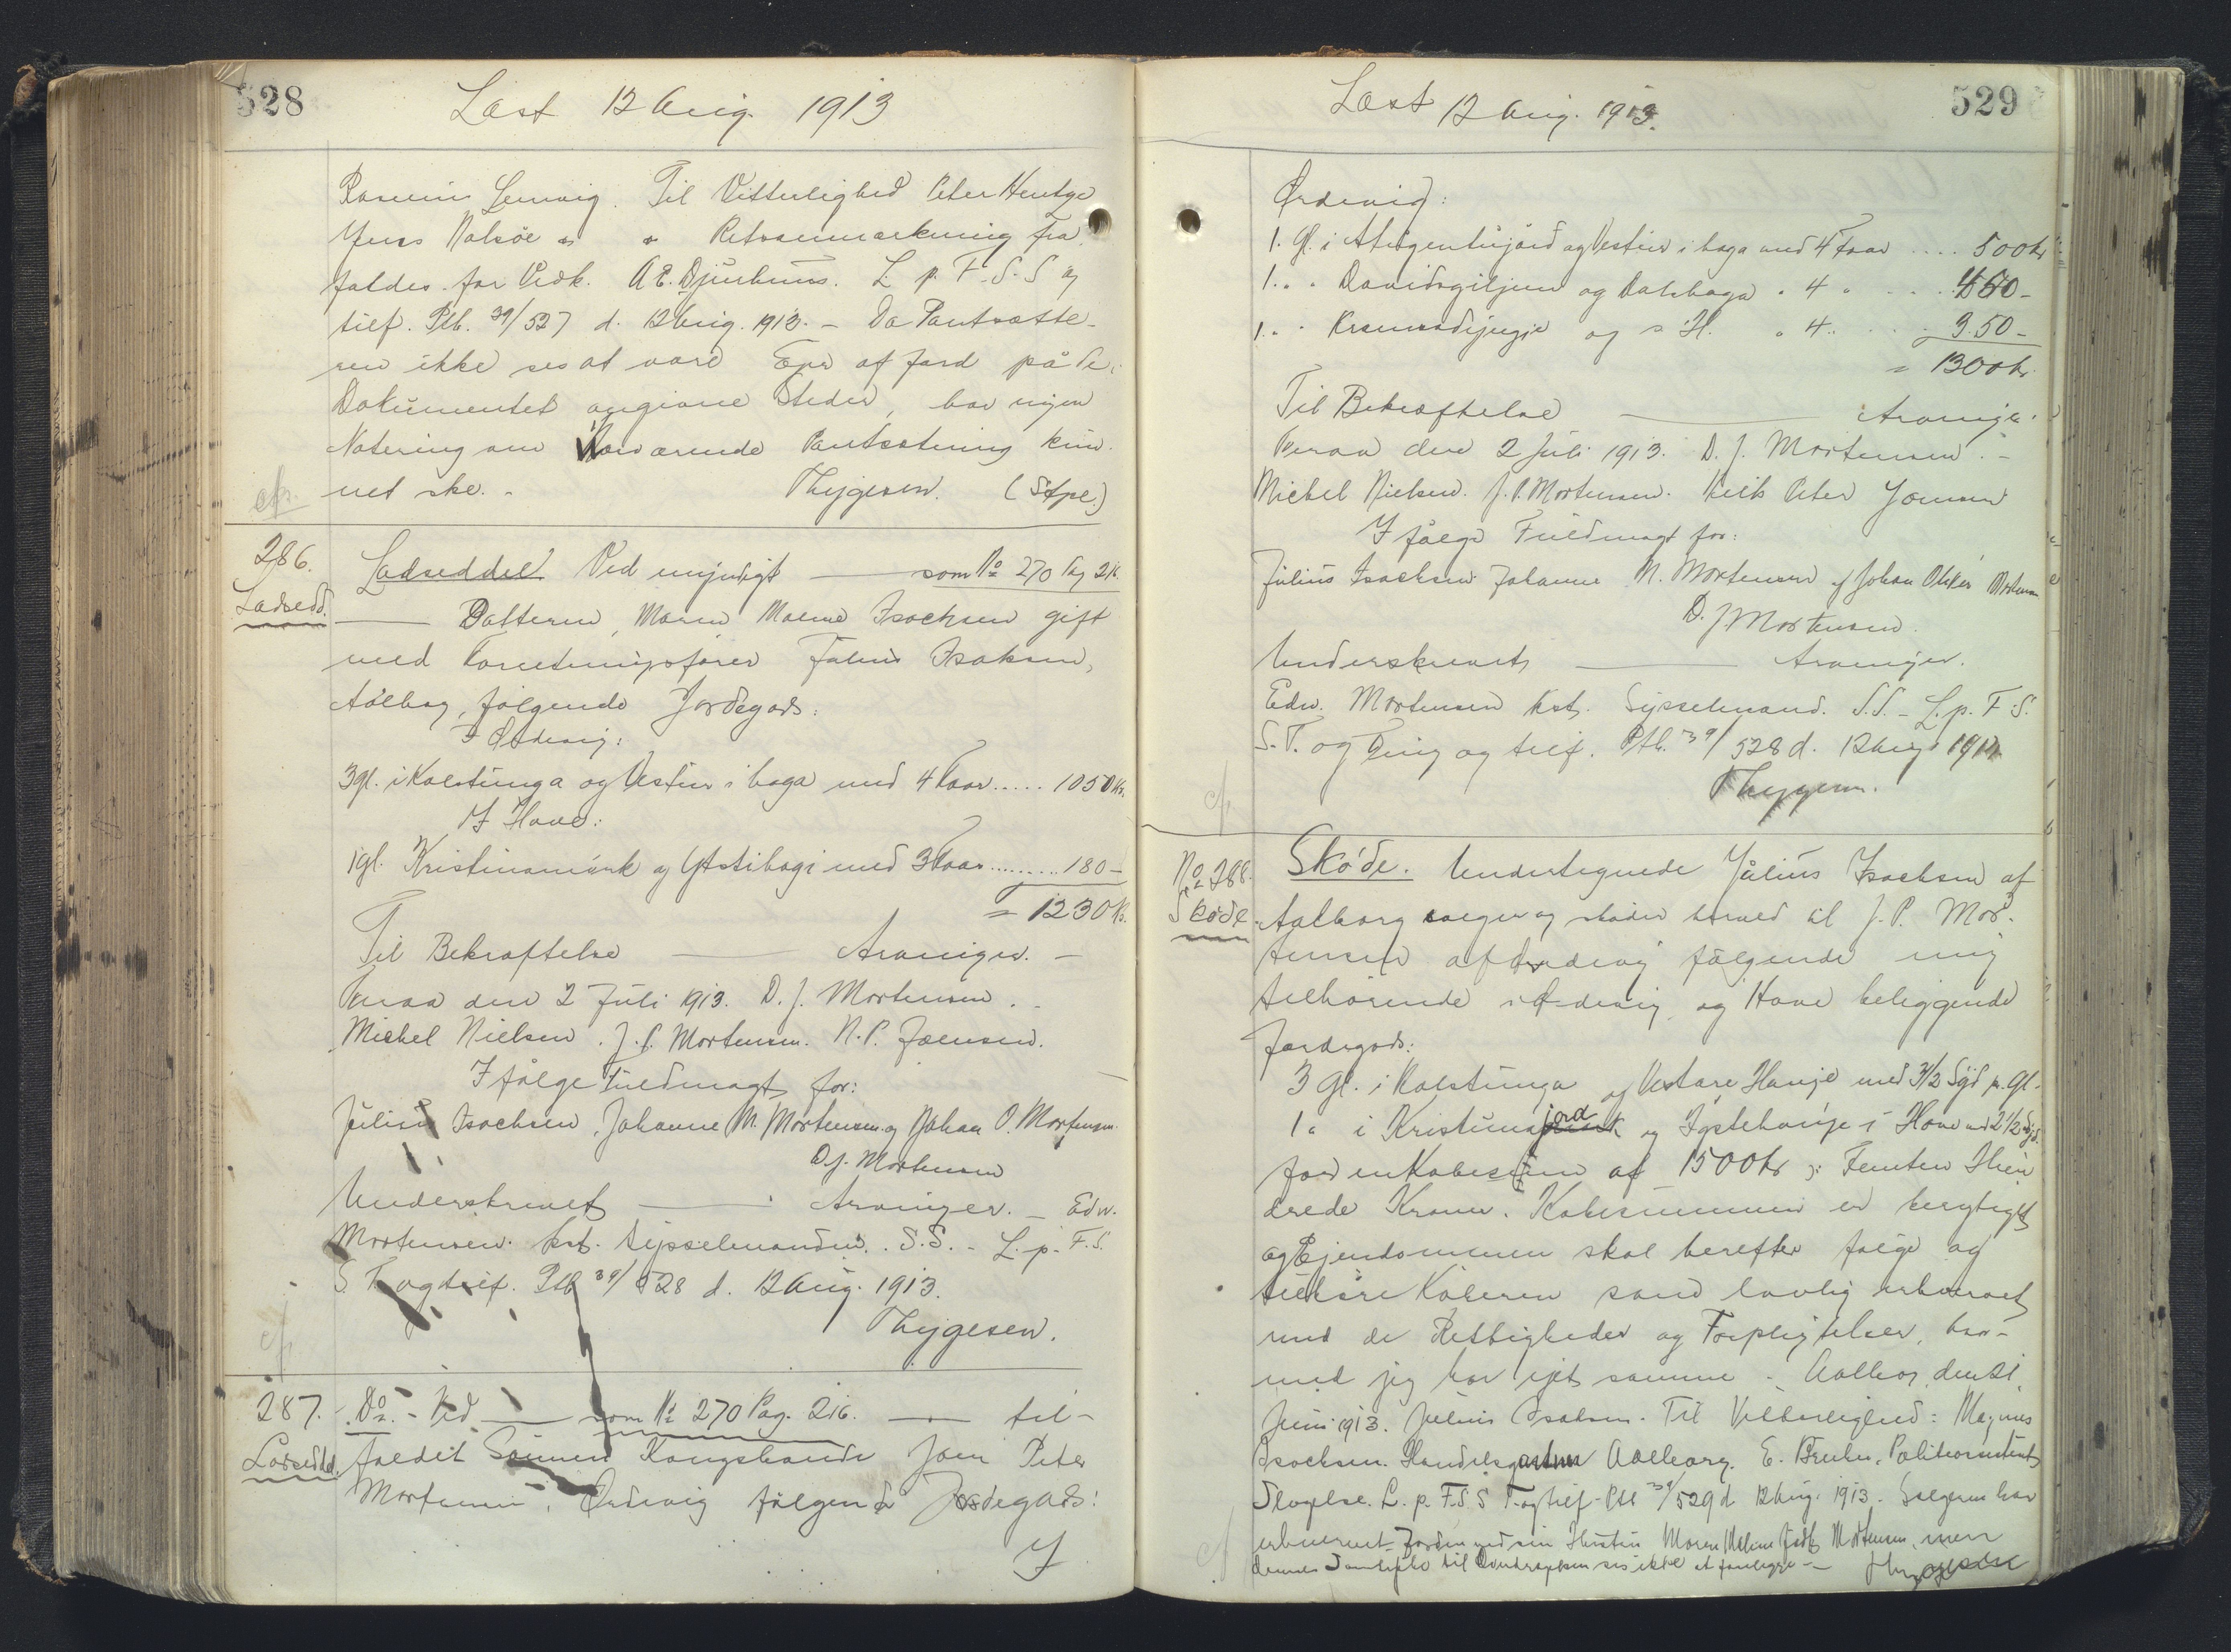 528
Læst 12 Aug. 1913
Lervig. Til Vitterlighed Peter Hentze
Jens Nolsøe Retsanmærkning fra
faldes for Vedk. A. E. Djurhuus. L. p. F. S. S og
tilf. Ptb. 39/527 d. 12 Aug. 1913. - Da Pantsætte-
ren ikke ses at være Ejer af Jord på de i
Dokumentet angivne Steder, har ingen
Notering om Nærværende Pantsætning kun-
net ske. - Thygesen. (Stpl.)
286. Ladseddel Ved myndigt — som No 270 Pag 216.
Ladsedd. — Datteren, Maren Malene Isachsen gift
med Forretningsfører Julius Isaksen,
Aalborg, følgende Jordegods:
I Ørdevig:
3 gl. i Kalvtunga og Vestur i haga med 4 Faar ..... 1050 Kr.
I Hove:
1 gl. Kristinamørk og Ytstihagi med 3 Faar ......... 180 -
= 1230 Kr.
Til Bekræftelse — Arvinger. -
Porkeraa den 2 Juli 1913. D. J. Mortensen. -
Michel Nielsen. J. P. Mortensen. N. P. Joensen.
Ifølge Fuldmagt for:
Julius Isachsen, Johanne M. Mortensen og Johan O. Mortensen.
D. J. Mortensen
Underskrevet — Arvinger. - Edw.
Mortensen kst. Sysselmand. S.S. - L. p. F. S.
S. T. og tilf. Ptb 39/528 d. 12 Aug. 1913.
Thygesen.
287. Do. - Ved — som No 270 Pag. 216. — til-
Ladsedd. faldet Sønnen Kongsbonde Joen Peter
Mortensen, Ørdevig følgende Jordegods:
I
529
Læst 12 Aug. 1913.
Ørdevig:
1. gl. i og Vestur i haga med 4 Faar .... 500 Kr
1. " Davidsgiljum og Dalshaga " 4 " .... 450 -
1. " og s H. " 4 " .... 350 -
= 1300 Kr.
Til Bekræftelse — Arvinger.
den 2 Juli 1913. D. J. Mortensen. -
Michel Nielsen. J. P. Mortensen. Niels Peter Joensen
Ifølge Fuldmagt for:
Julius Isachsen Johanne M. Mortensen og Johan Mortensen
D. J. Mortensen.
Underskrevet — Arvinger.
Edw. Mortensen kst. Sysselmand. S.S. - L. p. F. S.
S. T. og Ting og tilf. Ptb. 39/528 d. 12 Aug 1913
Thygesen.
No 288. Skøde. Undertegnede Julius Isachsen af
Skøde. Aalborg sælger og skøder herved til J. P. Mor-
tensen af Ørdevig følgende mig
tilhørende i Ørdevig og Hove beliggende
Jordegods:
3 gl. i Kalvtunga og Vestare Hauge med 3 1/2 Sgd p. Gl.
1 " i Kristinajord og Ystehauge i Hove med 2 1/2 Sgd.
for en Købesum af 1500 Kr ɔ: Femten Hun
drede Kroner. Købesummen er berigtiget
og Ejendommen skal herefter følge og
tilhøre Køberen som lovlig erhvervet
med de Rettigheder og Forpligtelser, hvor-
med jeg har ejet samme. - Aalborg, den 21.
Juni 1913. Julius Isaksen. Til Vitterlighed: Magnus
Isachsen. Handelsgartner Aalborg. E. Politiassistent
Slagelse. L. p. F. S. S T. og tilf. Ptb 39/529 d 12 Aug. 1913. - Sælgeren har
erhvervet Jorden med sin Hustru Maren Malene født Mortensen, men
dennes Samtykke til ses ikke at foreligge. - Thygesen